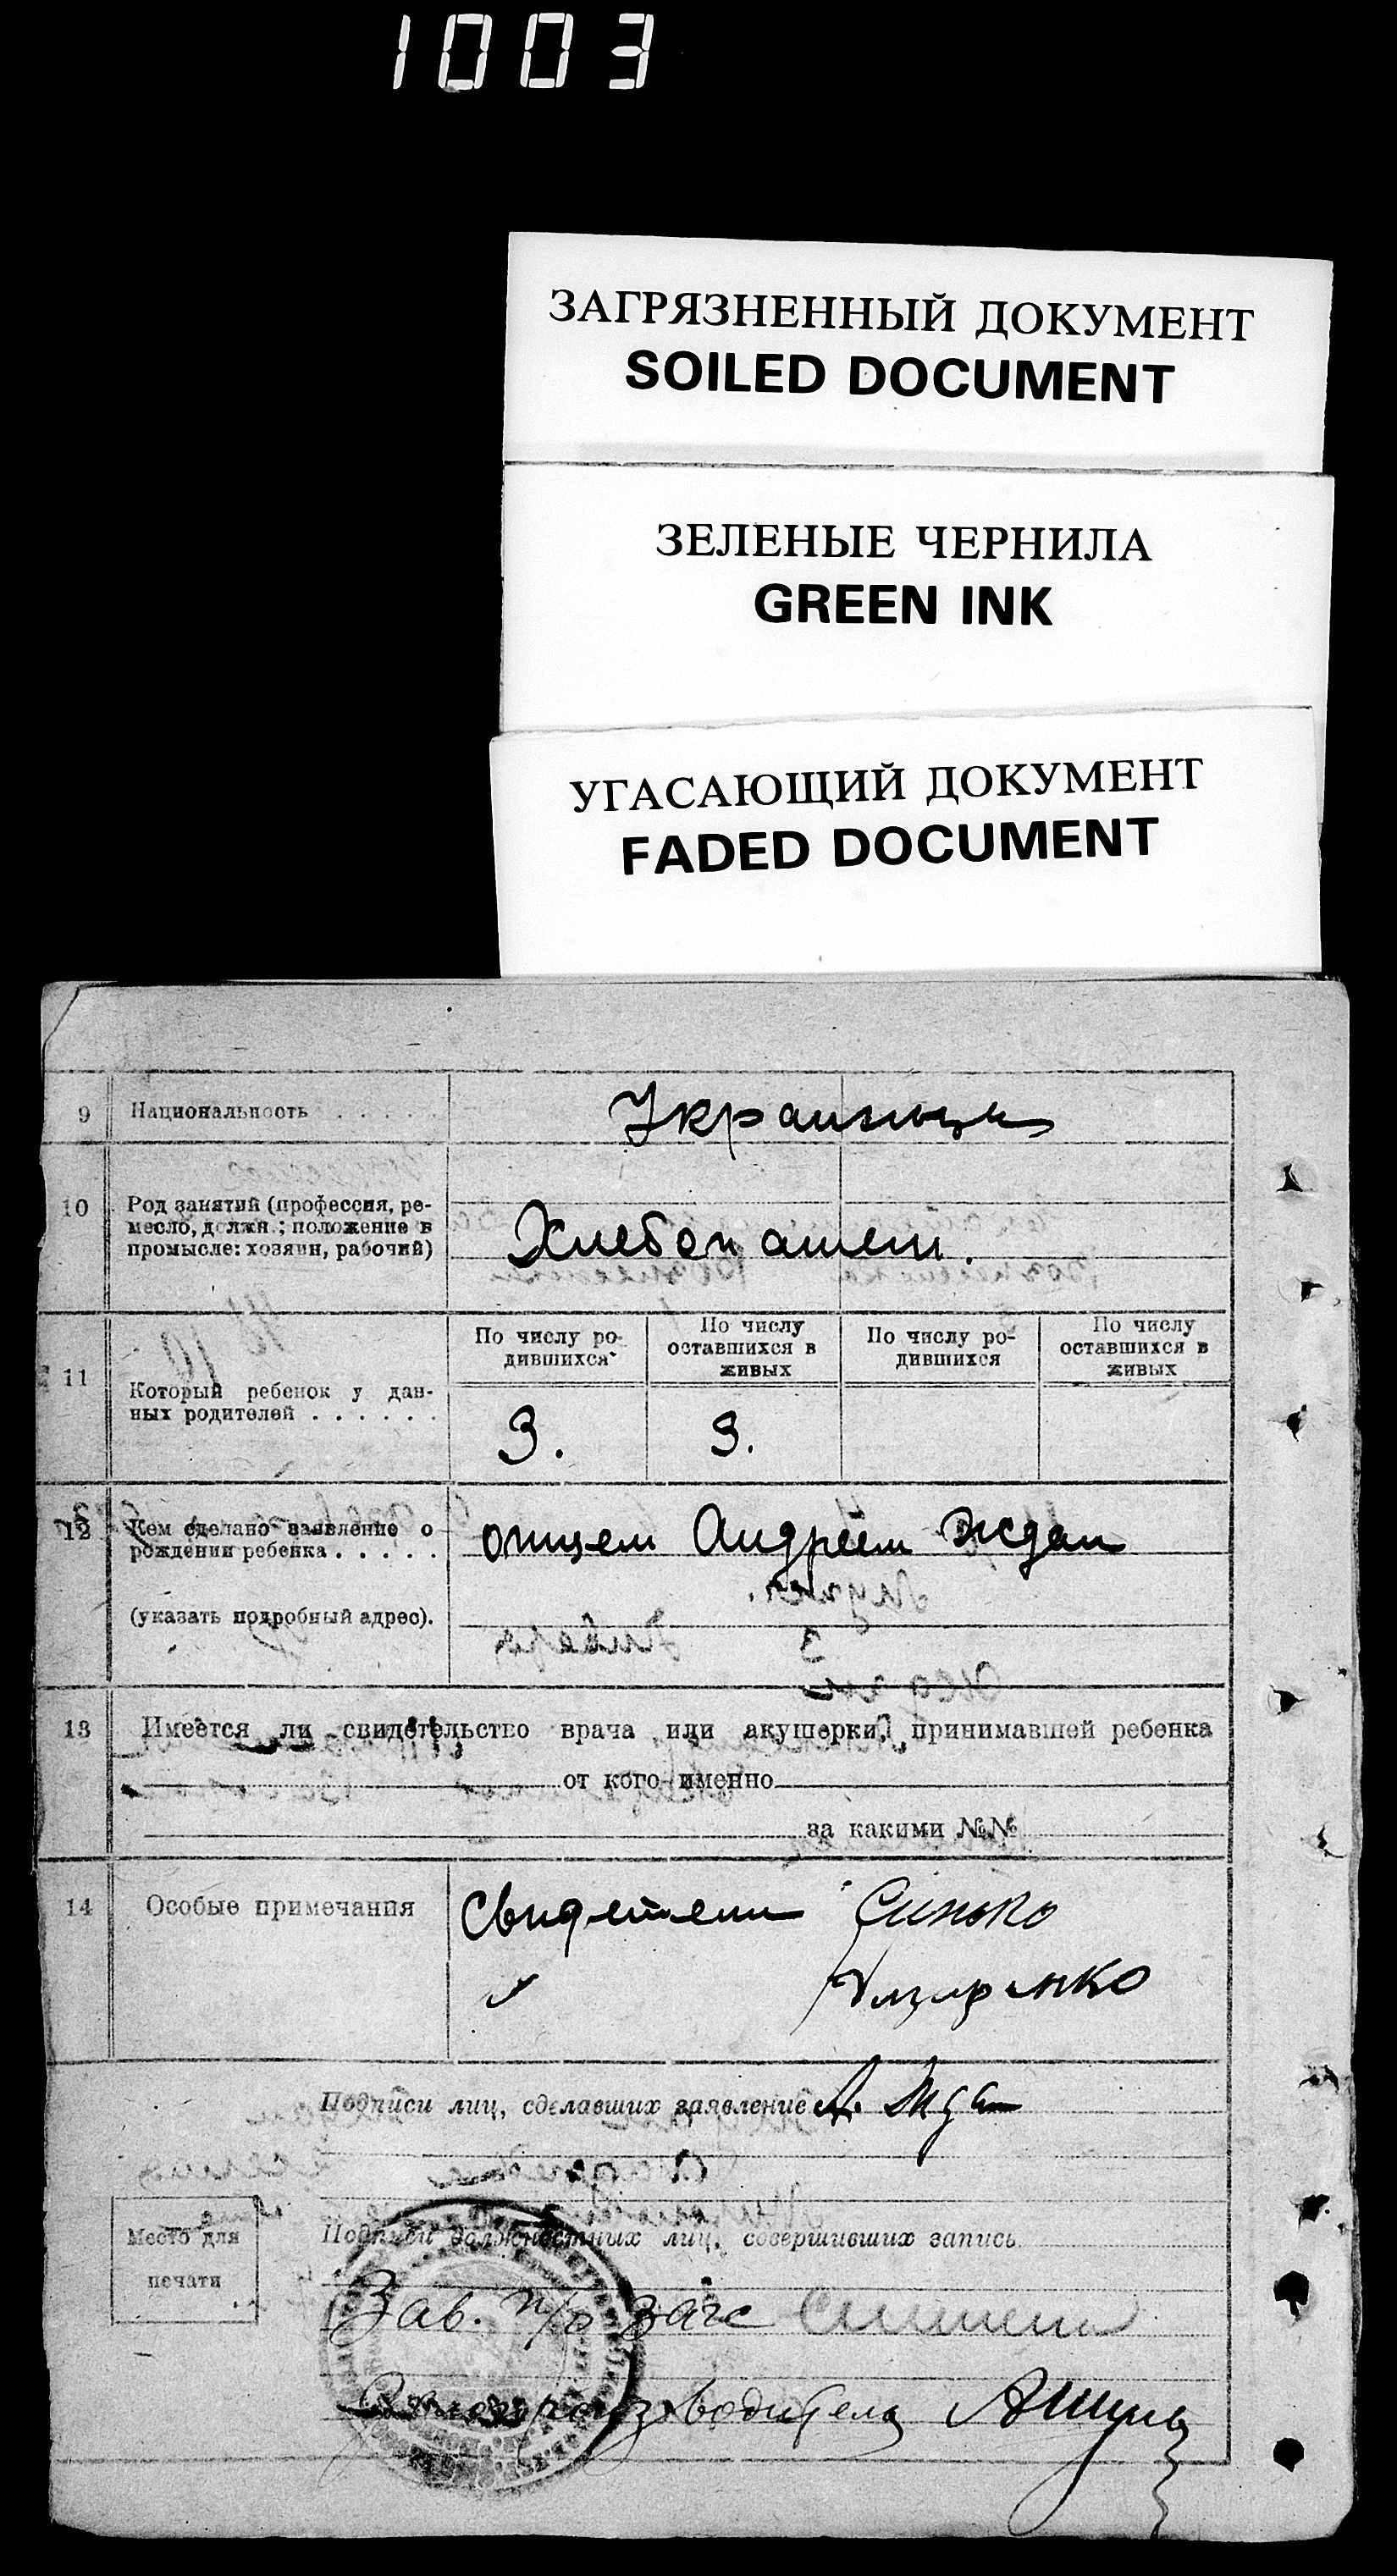 1003
ЗАГРЯЗНЕННЫЙ ДОКУМЕНТ
SOILED DOCUMENT
ЗЕЛЕНЫЕ ЧЕРНИЛА
GREEN INK
УГАСАЮЩИЙ ДОКУМЕНТ
FADED DOCUMENT
9 Национальность . . . . . Украинцы
10 Род занятий (профессия, ре-
месло, должн.; положение в
промысле: хозяин, рабочий)
Хлебопашец.
11 Который ребенок у дан-
ных родителей . . . . . .
По числу ро-
дившихся
По числу
оставшихся в
живых
По числу ро-
дившихся
По числу
оставшихся в
живых
3. 3.
12 Кем сделано заявление о
рождении ребенка . . . . .
(указать подробный адрес).
отцем Андреем Ждан
13 Имеется ли свидетельство врача или акушерки, принимавшей ребенка
от кого именно
за какими №№
14 Особые примечания
Свидетели Синько
Назаренко
Подписи лиц, сделавших заявление А. Ждан
Место для
печати
Подписи должностных лиц, совершивших запись
Зав. п/о Загс
Делопроизводитель